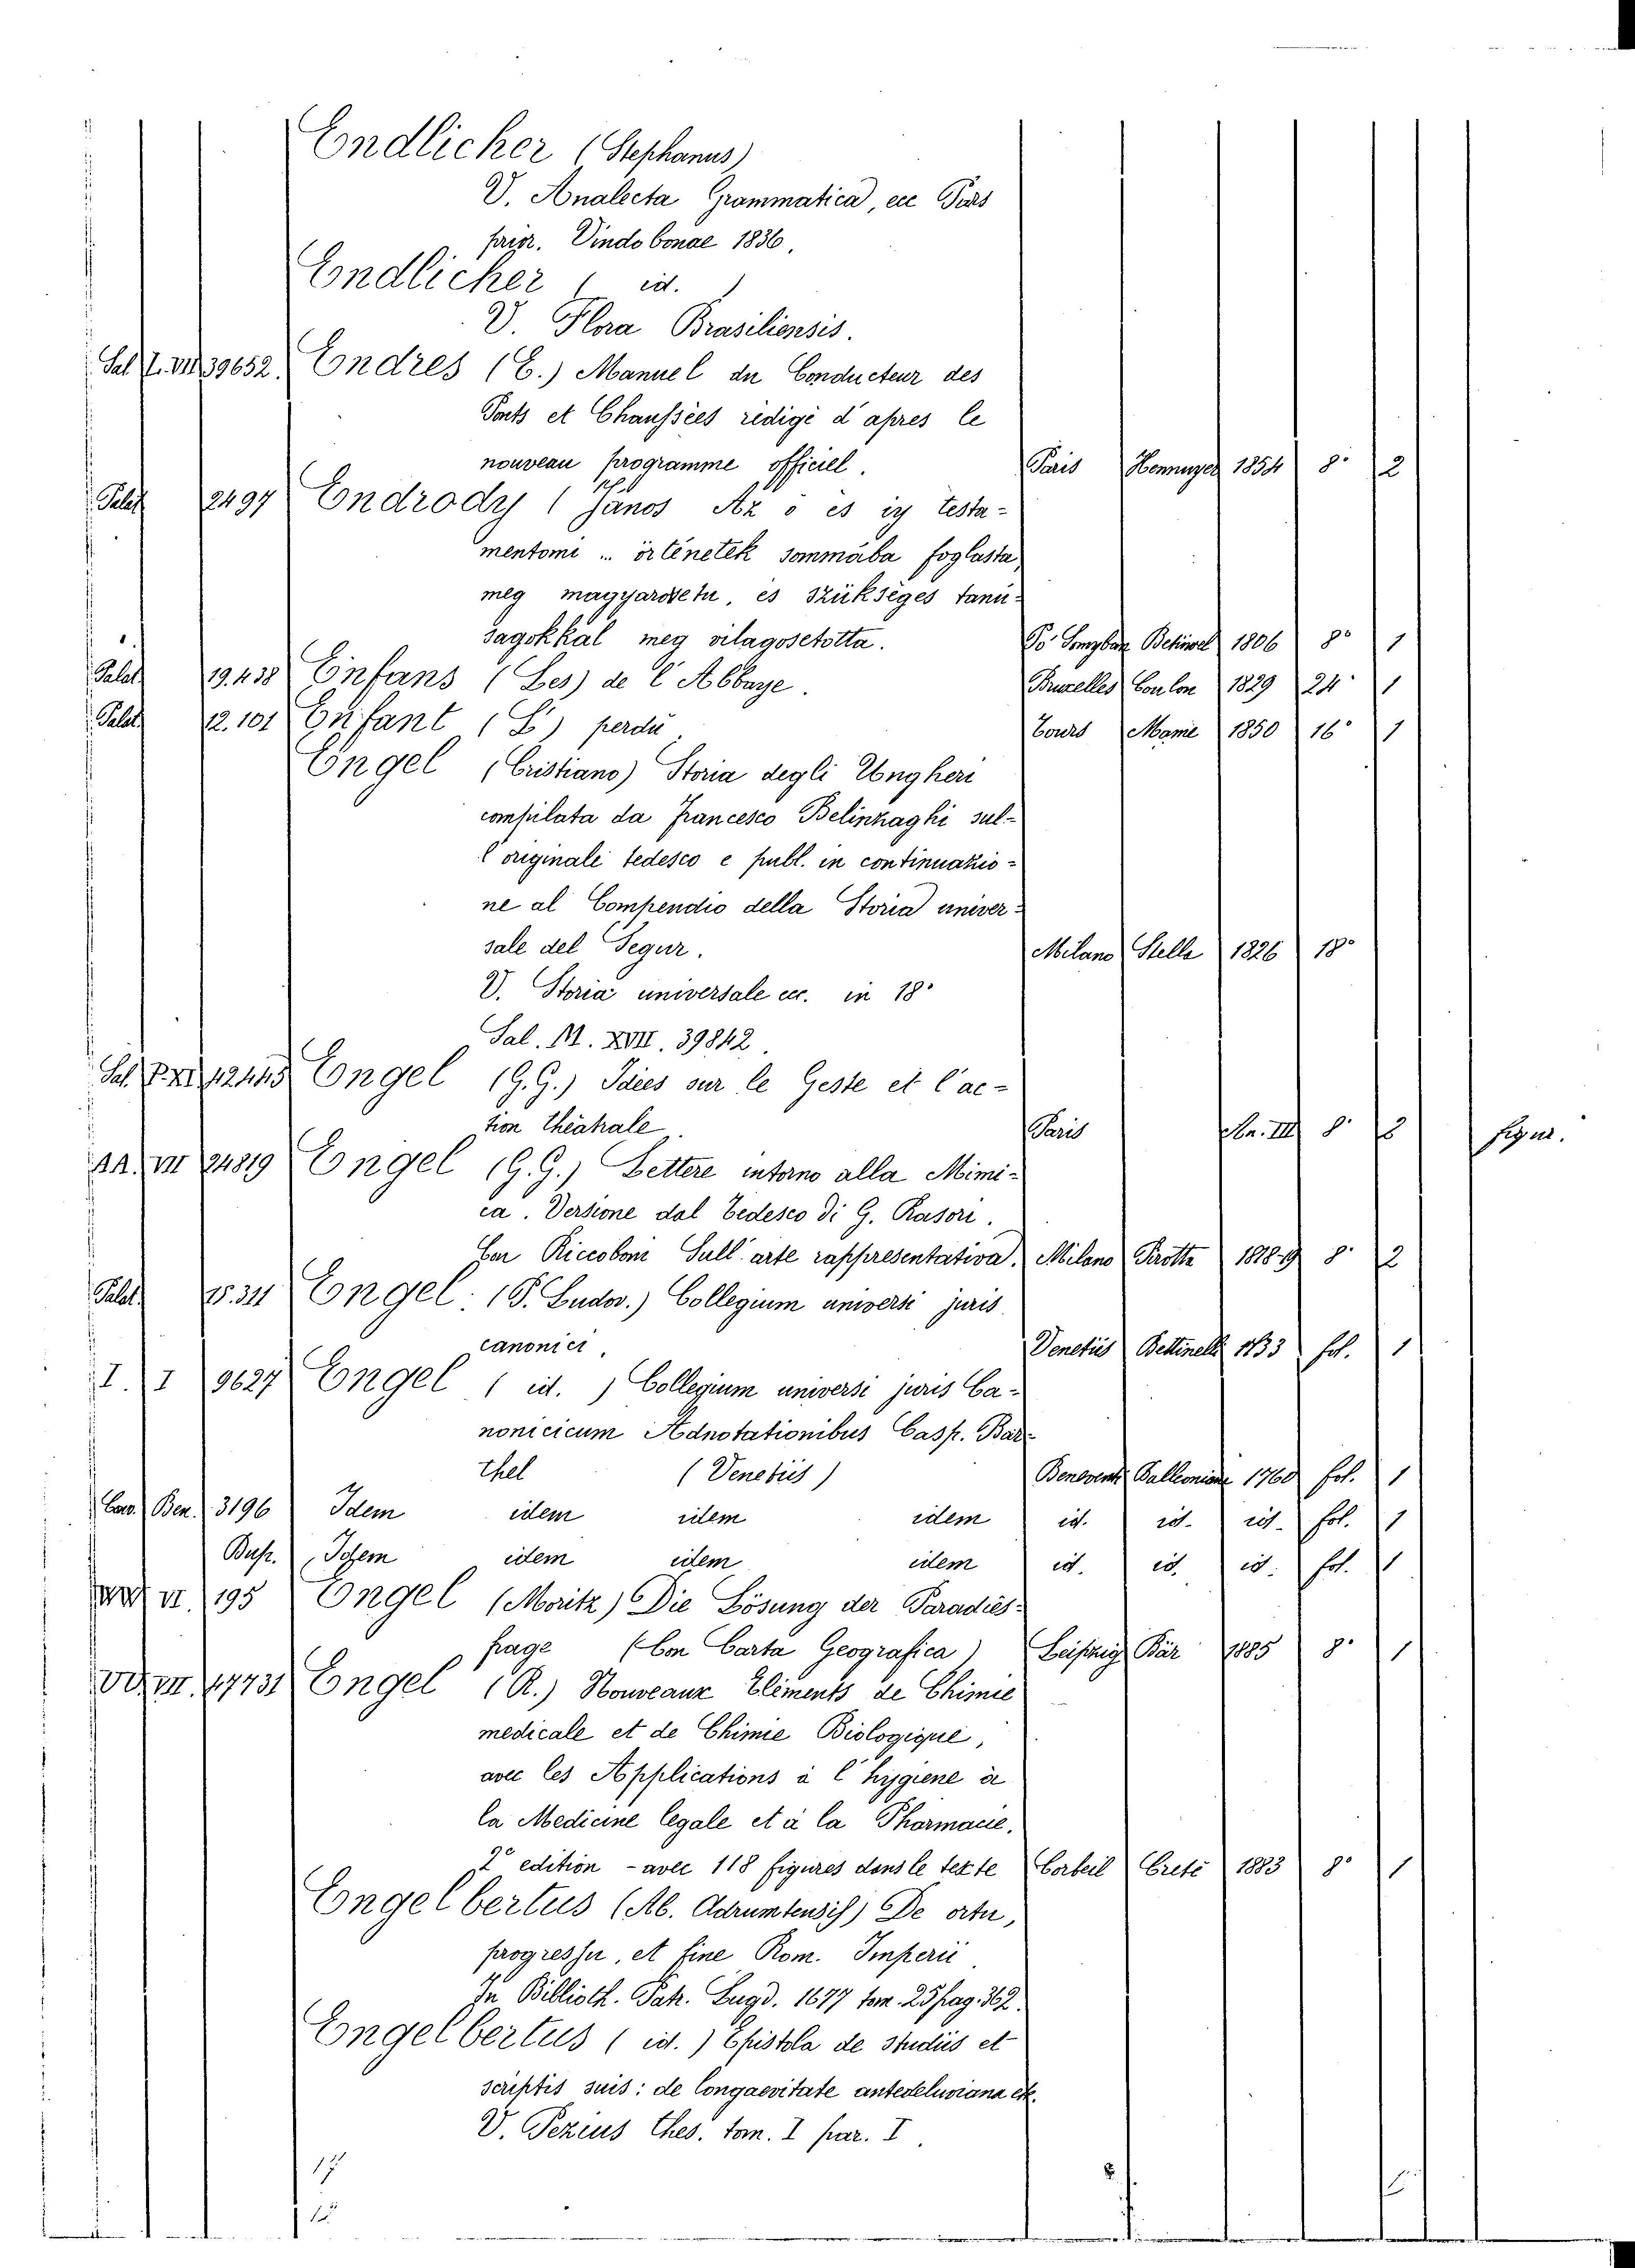 Endlicher (Stephanus)
V. Analecta Grammatica, ecc Pars
prior. Vindobonae 1836.
Endlicher ( id. )
V. Flora Brasiliensis.
Sal. L. VII 39652. Endres (E.) Manuel du Conducteur des
Ponts et Chaussées redigé d'apres le
nouveau programme officiel. Paris Hennuyer 1854 8° 2
Palat 2497 Endrody ( János Az ó es új testa-
mentomi ... örténetek sommába foglasta,
meg magyarozetu, es szükséges tanú-
sagokkál meg vilagosetotta. 1806 8° 1
Palat. 19.438 Enfans (Les) de l'Abbaye. Bruxelles Coulon 1829 24° 1
Palat. 12.101 Enfant (L') perdu. Tours Mame 1850 16° 1
Engel (Cristiano) Storia degli Ungheri
compilata da Francesco Belinzaghi sul-
l'originale tedesco e publ. in continuazio-
ne al Compendio della Storia univer-
sale del Segur. Milano Stella 1826 18°
V. Storia universale ecc. in 18°
Sal. M. XVII. 39842.
Sal. P. XI 42445 Engel (G.G.) Idées sur le Geste et l'ac-
tion théatrale. Paris An. III 8° 2 figur.
AA. VII 24819 Engel (G.G.) Lettere intorno alla Mimi-
ca. Versione dal Tedesco di G. Rasori.
Con Riccoboni Sull'arte rappresentativa. Milano Pirotta 1818-19 8° 2
Palat. 15.311 Engel. (P. Ludov.) Collegium universi juris
canonici. Venetiis Bettinelli 1733 fol. 1
I. I 9627 Engel ( id. ) Collegium universi juris Ca-
nonicicum Adnotationibus Casp. Bar-
thel (Venetiis) Beneventi 1760 fol. 1
Ben. 3196 Idem idem idem idem id. id. id. fol. 1
Busp. Idem idem idem idem id. id. id. fol. 1
VI. 195 Engel (Moritz) Die Lösung der Paradies-
frage (Con Carta Geografica) Leipzig Bär 1885 8° 1
VII. 47731 Engel (R.) Nouveaux Eléments de Chimie
medicale et de Chimie Biologique,
avec les Applications à l'hygiene à
la Medicine legale et à la Pharmacie.
2° edition - avec 118 figures dans le texte Corbeil Creté 1883 8° 1
Engelbertus (Ab. Adrumtensis) De ortu,
progressu, et fine Rom. Imperii
In Billioth. Patr. Lugd. 1677 tom. 25 pag. 362.
Engelbertus ( id. ) Epistola de studiis et
scriptis suis: de longaevitate antedeluviana etc.
V. Pezius thes. tom. I par. I.
17